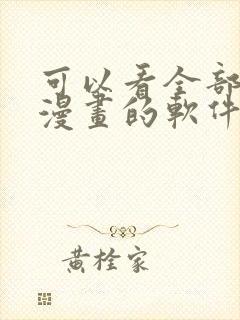 可以看全部
漫畫的軟件
黃栓家